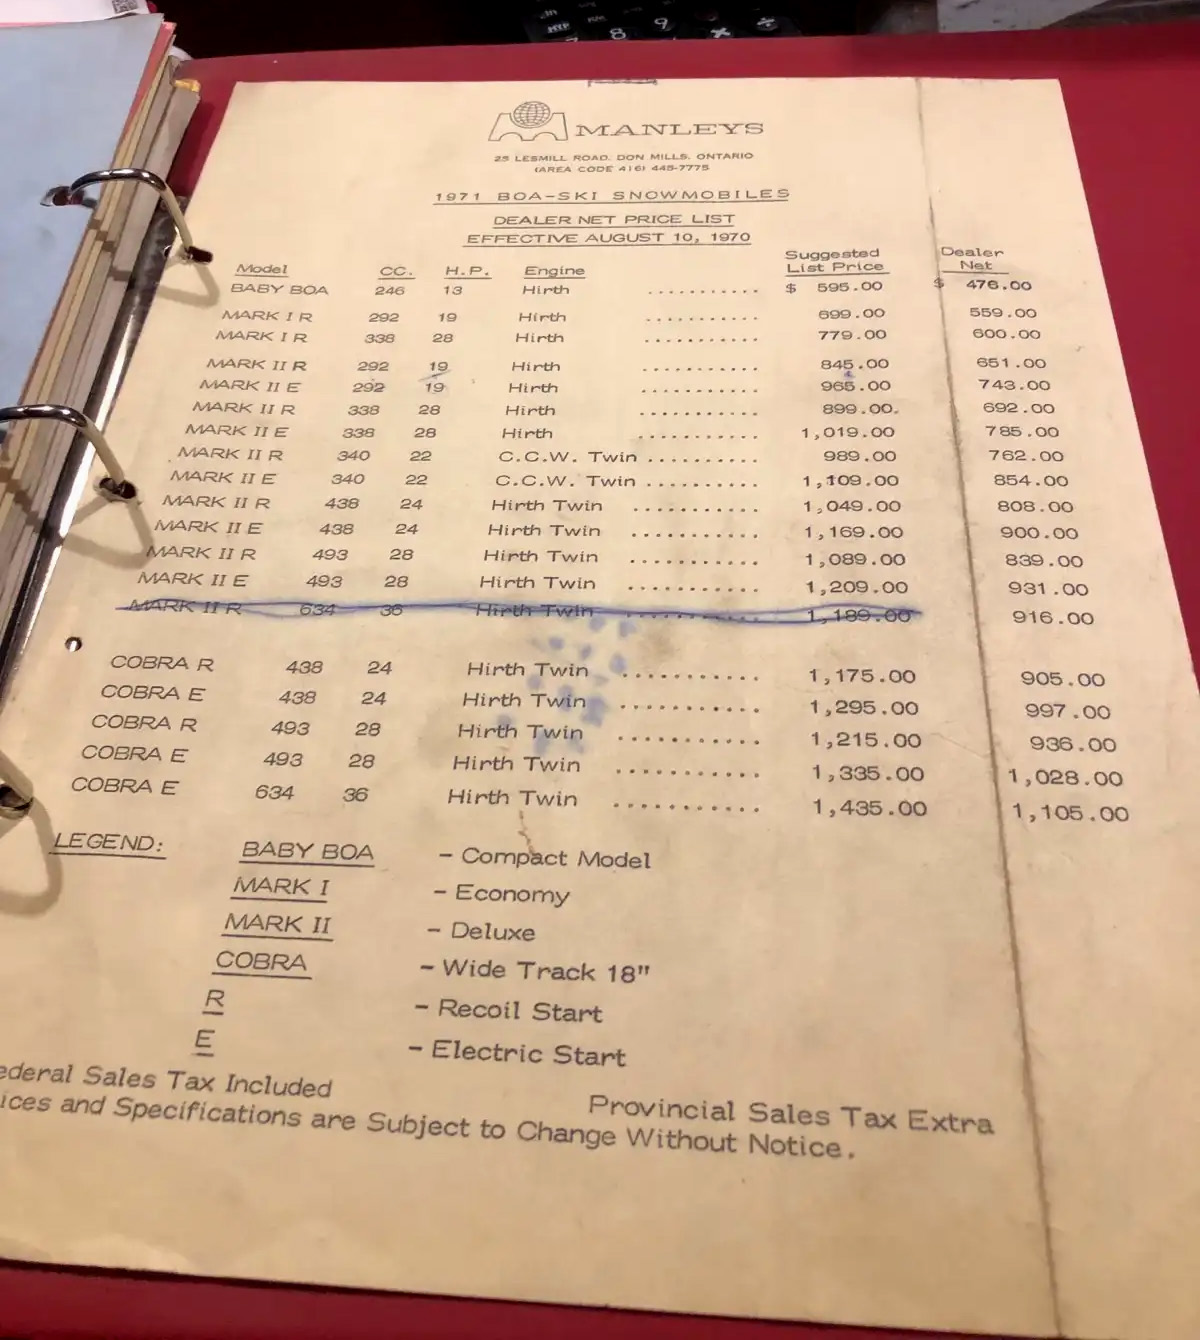 MANLEYS
25 LESMILL ROAD, DON MILLS, ONTARIO
(AREA CODE 416) 445-7775
1971 BOA-SKI SNOWMOBILES
DEALER NET PRICE LIST
EFFECTIVE AUGUST 10, 1970
Model CC. H.P. Engine Suggested List Price Dealer Net
BABY BOA 246 13 Hirth ........... $ 595.00 $ 476.00
MARK I R 292 19 Hirth ........... 699.00 559.00
MARK I R 338 28 Hirth ........... 779.00 600.00
MARK II R 292 19 Hirth ........... 845.00 651.00
MARK II E 292 19 Hirth ........... 965.00 743.00
MARK II R 338 28 Hirth ........... 899.00 692.00
MARK II E 338 28 Hirth ........... 1,019.00 785.00
MARK II R 340 22 C.C.W. Twin .......... 989.00 762.00
MARK II E 340 22 C.C.W. Twin .......... 1,109.00 854.00
MARK II R 438 24 Hirth Twin ........... 1,049.00 808.00
MARK II E 438 24 Hirth Twin ........... 1,169.00 900.00
MARK II R 493 28 Hirth Twin ........... 1,089.00 839.00
MARK II E 493 28 Hirth Twin ........... 1,209.00 931.00
MARK II R 634 36 Hirth Twin ........... 1,189.00 916.00
COBRA R 438 24 Hirth Twin ........... 1,175.00 905.00
COBRA E 438 24 Hirth Twin ........... 1,295.00 997.00
COBRA R 493 28 Hirth Twin ........... 1,215.00 936.00
COBRA E 493 28 Hirth Twin ........... 1,335.00 1,028.00
COBRA E 634 36 Hirth Twin ........... 1,435.00 1,105.00
LEGEND: BABY BOA - Compact Model
MARK I - Economy
MARK II - Deluxe
COBRA - Wide Track 18"
R - Recoil Start
E - Electric Start
ederal Sales Tax Included Provincial Sales Tax Extra
ices and Specifications are Subject to Change Without Notice.